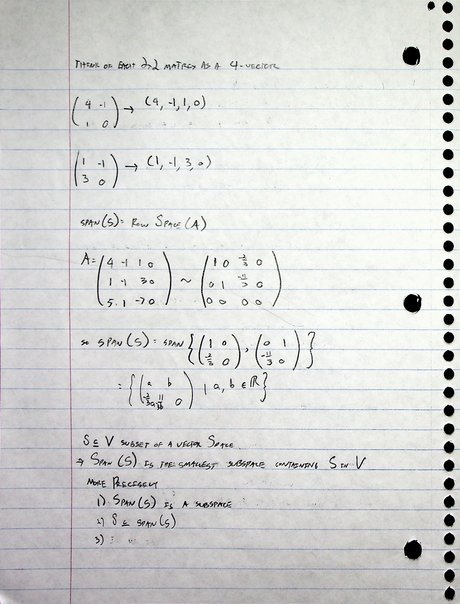 THINK OF EACH 2×2 MATRIX AS A 4-VECTOR
( 4 -1
1 0 ) → (4, -1, 1, 0)
( 1 -1
3 0 ) → (1, -1, 3, 0)
SPAN(S) = ROW SPACE (A)
A = ( 4 -1 1 0
1 -1 3 0
5 1 -7 0 ) ~ ( 1 0 -2/3 0
0 1 -11/3 0
0 0 0 0 )
SO SPAN(S) = SPAN { ( 1 0
-2/3 0 ) , ( 0 1
-11/3 0 ) }
= { ( a b
0 ) | a, b ∈ ℝ }
S ⊆ V SUBSET OF A VECTOR SPACE
→ SPAN (S) IS THE SMALLEST SUBSPACE CONTAINING S IN V
MORE PRECISELY
1) SPAN(S) IS A SUBSPACE
2) S ⊆ SPAN(S)
3)